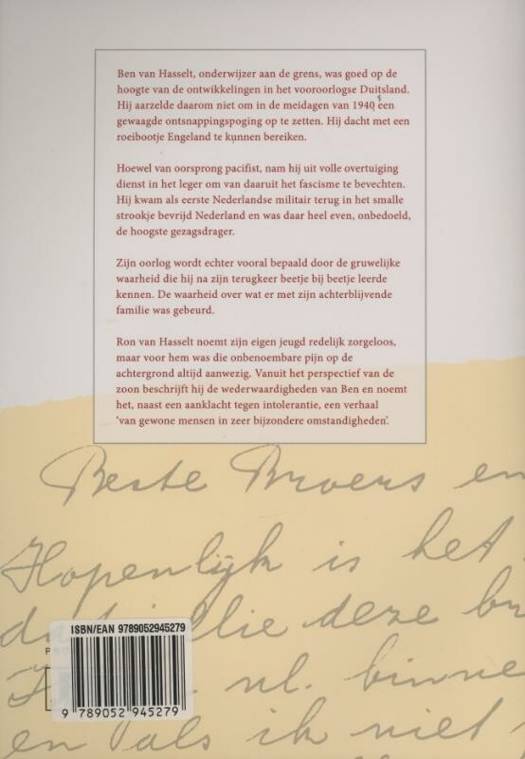 Ben van Hasselt, onderwijzer aan de grens, was goed op de
hoogte van de ontwikkelingen in het vooroorlogse Duitsland.
Hij aarzelde daarom niet om in de meidagen van 1940 een
gewaagde ontsnappingspoging op te zetten. Hij dacht met een
roeibootje Engeland te kunnen bereiken.
Hoewel van oorsprong pacifist, nam hij uit volle overtuiging
dienst in het leger om van daaruit het fascisme te bevechten.
Hij kwam als eerste Nederlandse militair terug in het smalle
strookje bevrijd Nederland en was daar heel even, onbedoeld,
de hoogste gezagsdrager.
Zijn oorlog wordt echter vooral bepaald door de gruwelijke
waarheid die hij na zijn terugkeer beetje bij beetje leerde
kennen. De waarheid over wat er met zijn achterblijvende
familie was gebeurd.
Ron van Hasselt noemt zijn eigen jeugd redelijk zorgeloos,
maar voor hem was die onbenoembare pijn op de
achtergrond altijd aanwezig. Vanuit het perspectief van de
zoon beschrijft hij de wederwaardigheden van Ben en noemt
het, naast een aanklacht tegen intolerantie, een verhaal
'van gewone mensen in zeer bijzondere omstandigheden'.
Beste Broers en
Hopenlijk is het
deze br
ISBN/EAN 9789052945279
nl. binne
9 789052 945279
en als ik niet